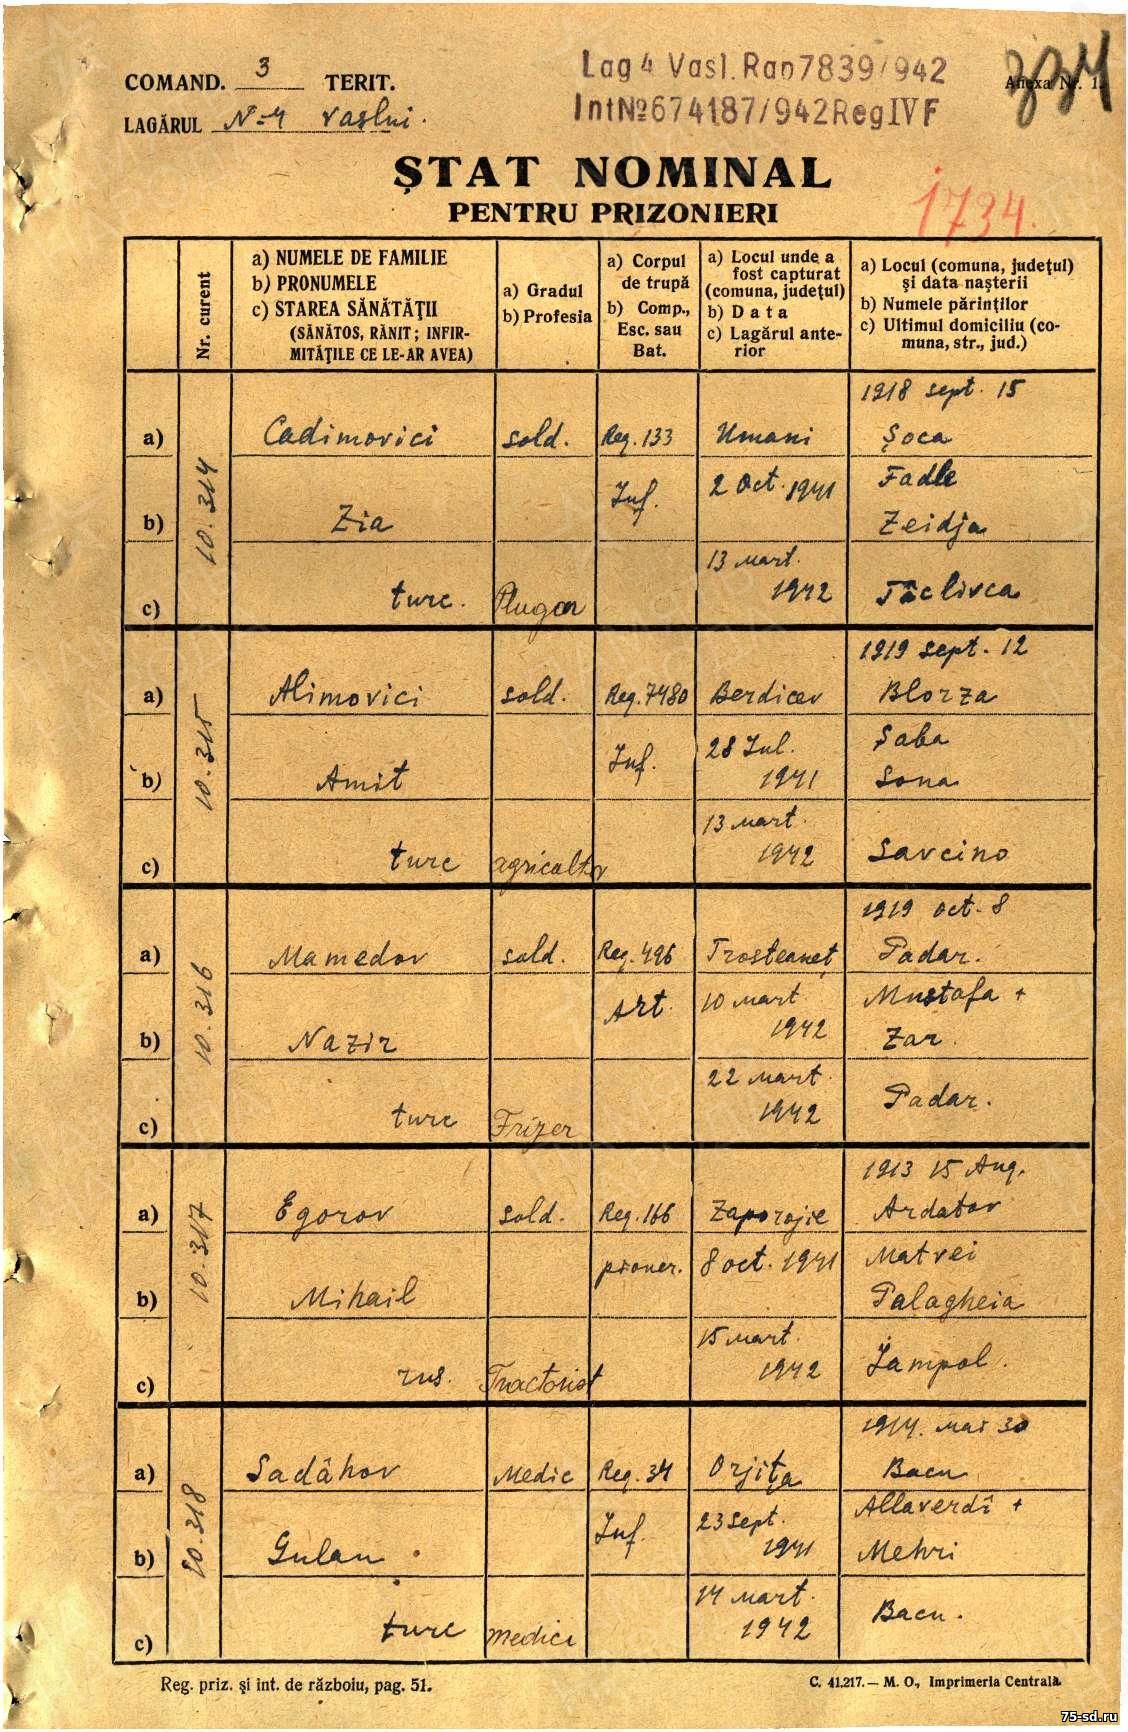 COMAND. 3 TERIT.
LAGĂRUL N-4 Vaslui.
Lag 4 Vasl. Rap 7839/942
Int № 674187/942 Reg IV F
Anexa Nr. 1.
334
ȘTAT NOMINAL
PENTRU PRIZONIERI
1734.
Nr. curent
a) NUMELE DE FAMILIE
b) PRONUMELE
c) STAREA SĂNĂTĂȚII
(SĂNĂTOS, RĂNIT; INFIR-
MITĂȚILE CE LE-AR AVEA)
a) Gradul
b) Profesia
a) Corpul
de trupă
b) Comp.,
Esc. sau
Bat.
a) Locul unde a
fost capturat
(comuna, județul)
b) Data
c) Lagărul ante-
rior
a) Locul (comuna, județul)
și data nașterii
b) Numele părinților
c) Ultimul domiciliu (co-
muna, str., jud.)
10.314
1918 sept. 15
a) Cadimovici sold. Reg. 133 Umani Șoca
Inf. 2 Oct. 1941 Fadle
b) Zia Zeidja
13 mart.
c) turc. Plugar 1942 Tâclivca
10.315
1919 sept. 12
a) Alimovici sold. Reg. 7480 Berdicev Blorza
Inf. 28 Iul. Șaba
b) Amit 1941 Sona
13 mart.
c) turc agricultor 1942 Savcino
10.316
1919 oct. 8
a) Mamedov sold. Reg. 496 Trosteaneț Padar.
Art. 10 mart Mustafa +
b) Nazir 1942 Zar.
22 mart
c) turc Frizer 1942 Padar.
10.317
1913 15 Aug.
a) Egorov sold. Reg. 166 Zaporojie Ardatov
pioner. 8 oct. 1941 Matvei
b) Mihail Palagheia
15 mart.
c) rus. Tractorist 1942 Iampol.
10.318
1914. mai 30
a) Sadâhov Medic Reg. 34 Orjița Bacu
Inf. 23 Sept. Allaverdî +
b) Gulam 1941 Mehri
14 mart.
c) turc medici 1942 Bacu.
Reg. priz. și int. de războiu, pag. 51.
C. 41.217. — M. O., Imprimeria Centrală.
75-sd.ru